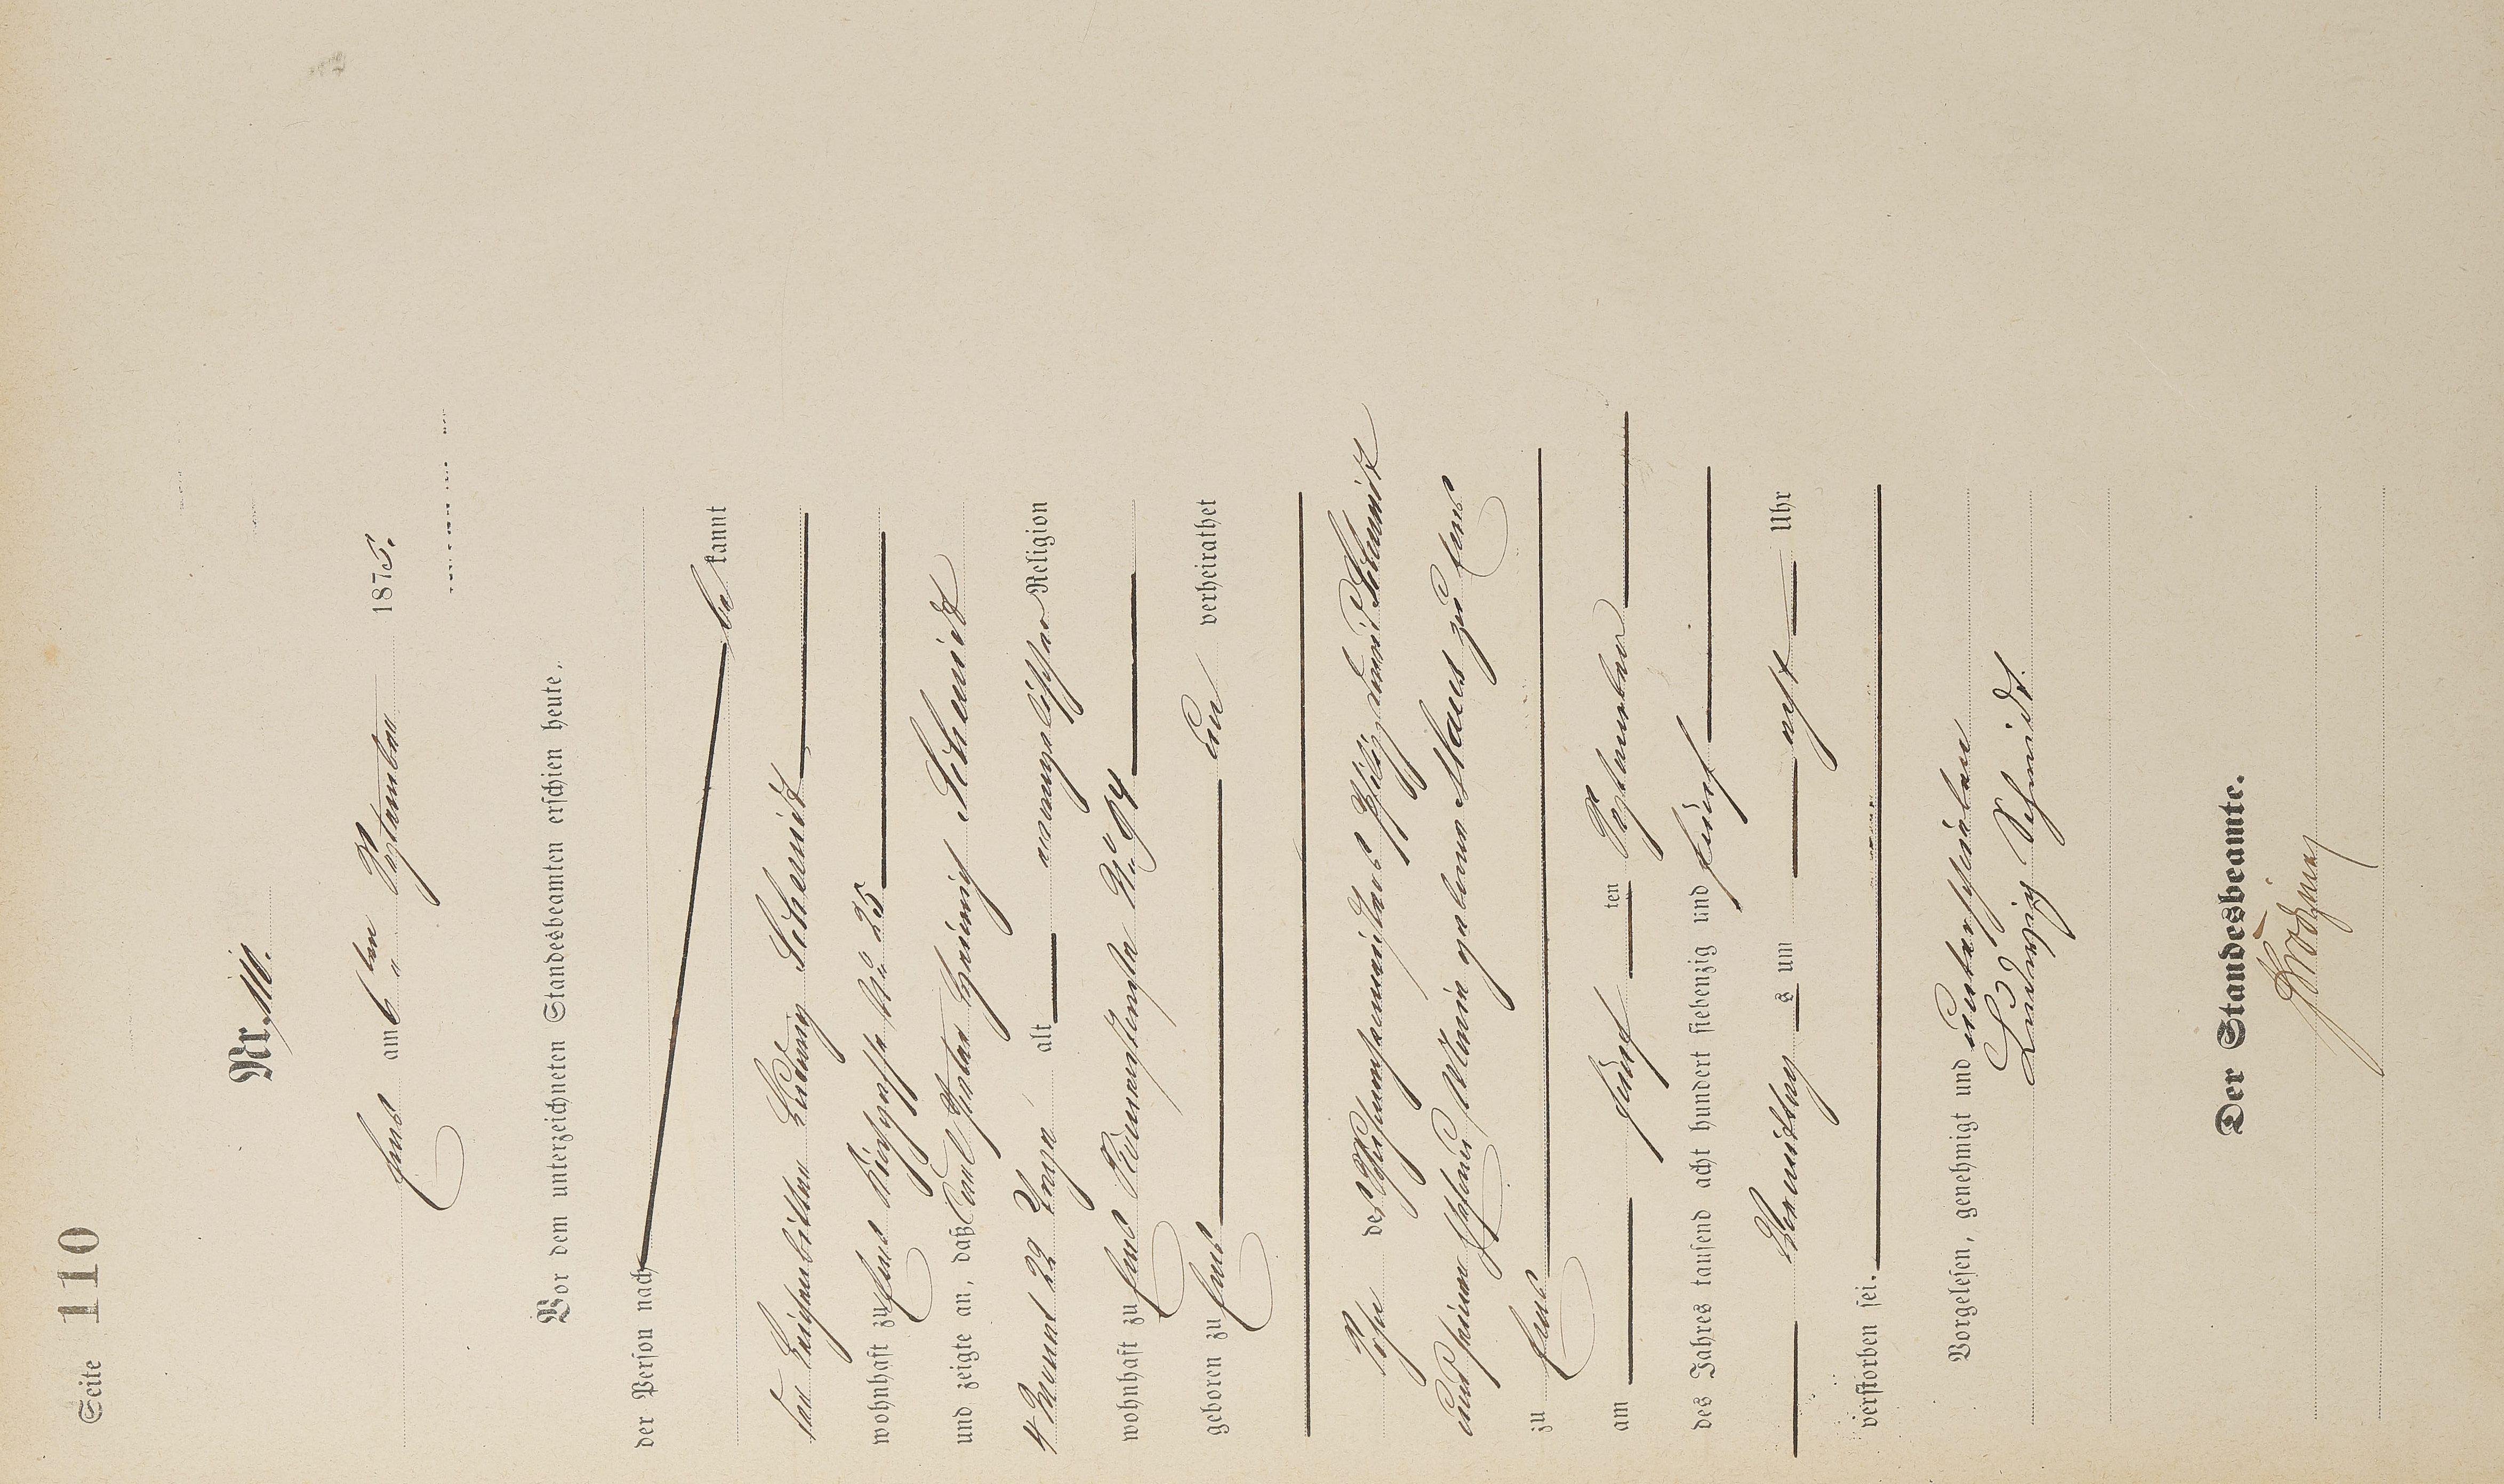 Seite 110
Nr. 110.
Ems am 6ten September 1875.
Vor dem unterzeichneten Standesbeamten erschien heute,
der Person nach
bekannt
der Leichenbitter Ludwig Schmidt
wohnhaft zu Ems Kirchgasse No 25
und zeigte an, daß Carl Gustav Heinrich Schmidt
4 Monat 22 Tage alt evangelischer Religion
wohnhaft zu Ems No 94
geboren zu Ems un verheirathet
Sohn des Philipp Schmidt
und seiner Ehefrau geborene zu Ems
zu Ems
am fünf ten September
des Jahres tausend acht hundert siebenzig und fünf
Vormittag s um acht Uhr
verstorben sei.
Vorgelesen, genehmigt und unterschrieben
Ludwig Schmidt
Der Standesbeamte.